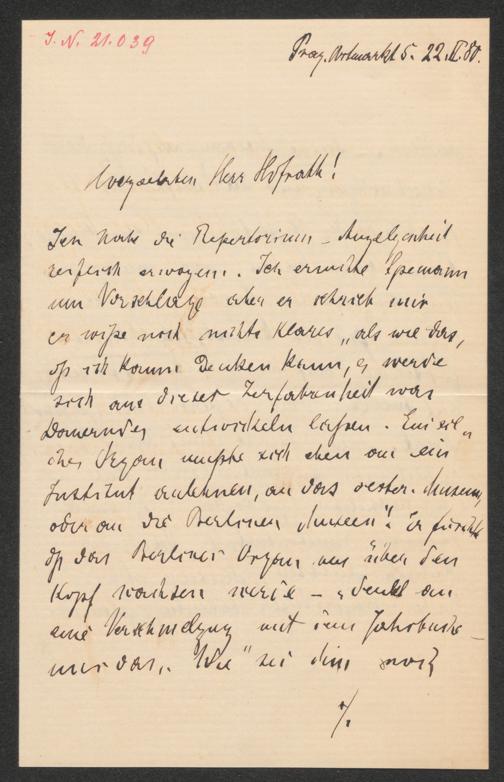 J. N. 21.039
Prag, Obstmarkt 5. 22.II.80.
Hochverehrter Herr Hofrath!
Ich habe die Repertorium-Angelegenheit
reiflich erwogen. Ich ersuchte Spemann
um Vorschläge aber er schrieb mir
er wiße noch nichts Klares „als wie das,
dß ich kaum denken kann, es werde
sich aus dieser Zerfahrenheit was
Dauerndes entwickeln laßen. Ein sol„
ches Organ mußte sich eben an ein
Institut anlehnen, an das oester. Museum,
oder an die Berliner Museen". Er fürchtet
dß das Berliner Organ uns über den
Kopf wachsen werde – „denkt an
eine Verschmelzung mit dem Jahrbuche –
nur das „Wie" sei ihm noch
./.